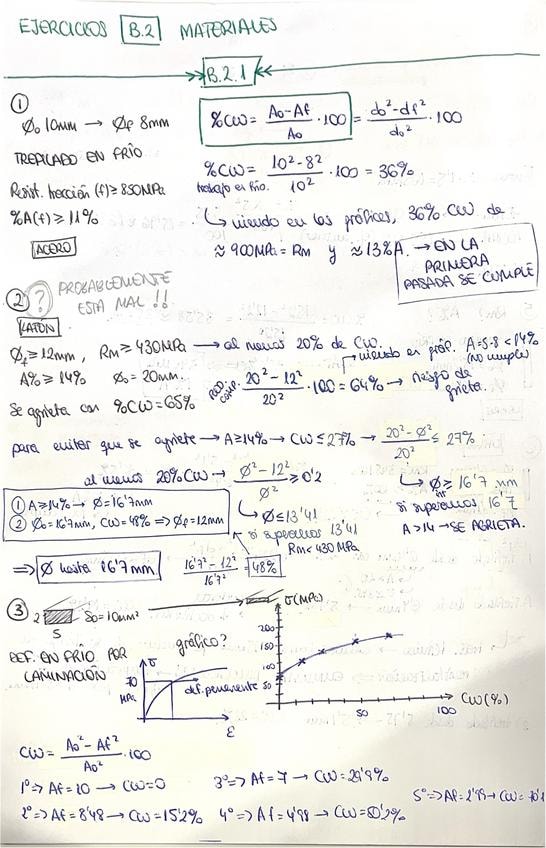 EJERCICIOS B.2 MATERIALES
B.2.1
①
Ø₀ 10mm → Øf 8mm
TREFILADO EN FRÍO
Resist. tracción (f) ≥ 850MPa
%A(f) ≥ 11%
ACERO
%CW = (A₀-Af)/A₀ · 100 = (d₀²-df²)/d₀² · 100
%CW = (10²-8²)/10² · 100 = 36%
trabajo en frío.
↳ viendo en las gráficas, 36% CW da
≈ 900MPa = Rm y ≈ 13%A. → EN LA
PRIMERA
PASADA SE CUMPLE
② ? PROBABLEMENTE
ESTÁ MAL !!
LATÓN
Øf ≥ 12mm, Rm ≥ 430MPa → al menos 20% de CW.
A% ≥ 14% Ø₀ = 20mm.
viendo en gráf. A=5-8 < 14%
(no cumple)
Se agrieta con %CW = 65%
(20²-12²)/20² · 100 = 64% → riesgo de
grieta.
para evitar que se agriete → A ≥ 14% → CW ≤ 27% → (20²-Ø²)/20² ≤ 27%
al menos 20% CW → (Ø²-12²)/Ø² ≥ 0'2
↳ Ø ≥ 16'7 mm
si superamos 16'7
A > 14 → SE AGRIETA.
↳ Ø ≤ 13'41
si superamos 13'41
Rm < 430 MPa
① A ≥ 14% → Ø = 16'7mm
② Ø₀ = 16'7mm, CW = 48% ⇒ Øf = 12mm
⇒ Ø hasta 16'7mm (16'7²-12²)/16'7² = 48%
③ 2 S₀ = 10mm²
S
DEF. EN FRÍO POR
LAMINACIÓN
gráfico?
σ
70
MPa
def. permanente
ε
σ(MPa)
200
150
100
50
50 100 CW(%)
CW = (A₀²-Af²)/A₀² · 100
1º ⇒ Af = 10 → CW = 0
2º ⇒ Af = 8'48 → CW = 15'2%
3º ⇒ Af = 7 → CW = 29'9%
4º ⇒ Af = 4'98 → CW = 50'2%
5º ⇒ Af = 2'99 → CW =